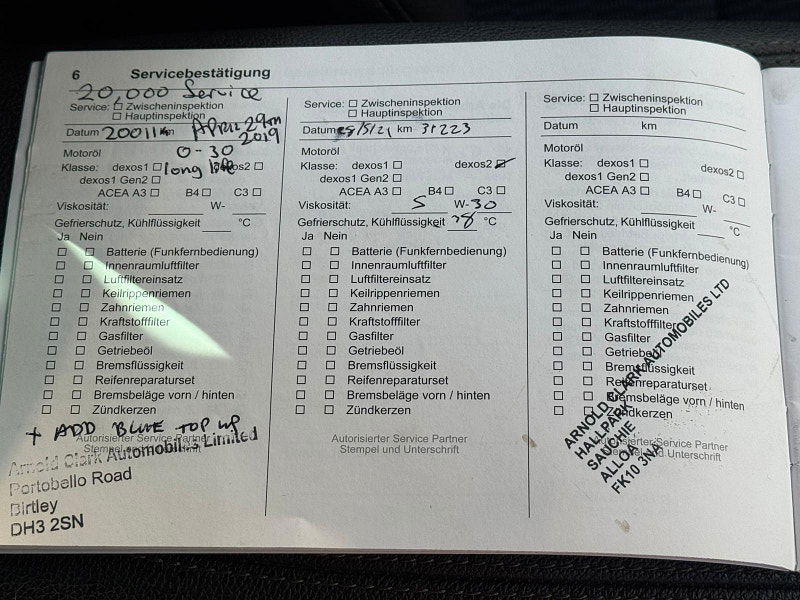 6 Servicebestätigung
20,000 Service
Service: ☐ Zwischeninspektion
☐ Hauptinspektion
Datum 20011 km April 29th
2019
Motoröl 0-30
Klasse: dexos1 ☐ long life dexos2 ☐
dexos1 Gen2 ☐
ACEA A3 ☐ B4 ☐ C3 ☐
Viskosität: W-
Gefrierschutz, Kühlflüssigkeit °C
Ja Nein
☐ ☐ Batterie (Funkfernbedienung)
☐ ☐ Innenraumluftfilter
☐ ☐ Luftfiltereinsatz
☐ ☐ Keilrippenriemen
☐ ☐ Zahnriemen
☐ ☐ Kraftstofffilter
☐ ☐ Gasfilter
☐ ☐ Getriebeöl
☐ ☐ Bremsflüssigkeit
☐ ☐ Reifenreparaturset
☐ ☐ Bremsbeläge vorn / hinten
☐ ☐ Zündkerzen
+ ADD BLUE TOP UP
Autorisierter Service Partner
Stempel und Unterschrift
Arnold Clark Automobiles Limited
Portobello Road
Birtley
DH3 2SN
Service: ☐ Zwischeninspektion
☐ Hauptinspektion
Datum /5/21 km 31223
Motoröl
Klasse: dexos1 ☐ dexos2 ☑
dexos1 Gen2 ☐
ACEA A3 ☐ B4 ☐ C3 ☐
Viskosität: 5 W-30
Gefrierschutz, Kühlflüssigkeit °C
Ja Nein
☐ ☐ Batterie (Funkfernbedienung)
☐ ☐ Innenraumluftfilter
☐ ☐ Luftfiltereinsatz
☐ ☐ Keilrippenriemen
☐ ☐ Zahnriemen
☐ ☐ Kraftstofffilter
☐ ☐ Gasfilter
☐ ☐ Getriebeöl
☐ ☐ Bremsflüssigkeit
☐ ☐ Reifenreparaturset
☐ ☐ Bremsbeläge vorn / hinten
☐ ☐ Zündkerzen
Autorisierter Service Partner
Stempel und Unterschrift
Service: ☐ Zwischeninspektion
☐ Hauptinspektion
Datum km
Motoröl
Klasse: dexos1 ☐ dexos2 ☐
dexos1 Gen2 ☐
ACEA A3 ☐ B4 ☐ C3 ☐
Viskosität: W-
Gefrierschutz, Kühlflüssigkeit °C
Ja Nein
☐ ☐ Batterie (Funkfernbedienung)
☐ ☐ Innenraumluftfilter
☐ ☐ Luftfiltereinsatz
☐ ☐ Keilrippenriemen
☐ ☐ Zahnriemen
☐ ☐ Kraftstofffilter
☐ ☐ Gasfilter
☐ ☐ Getriebeöl
☐ ☐ Bremsflüssigkeit
☐ ☐ Reifenreparaturset
☐ ☐ Bremsbeläge vorn / hinten
☐ ☐ Zündkerzen
Autorisierter Service Partner
Stempel und Unterschrift
ARNOLD CLARK AUTOMOBILES LTD
HALLPARK
SAUCHIE
ALLOA
FK10 3NA